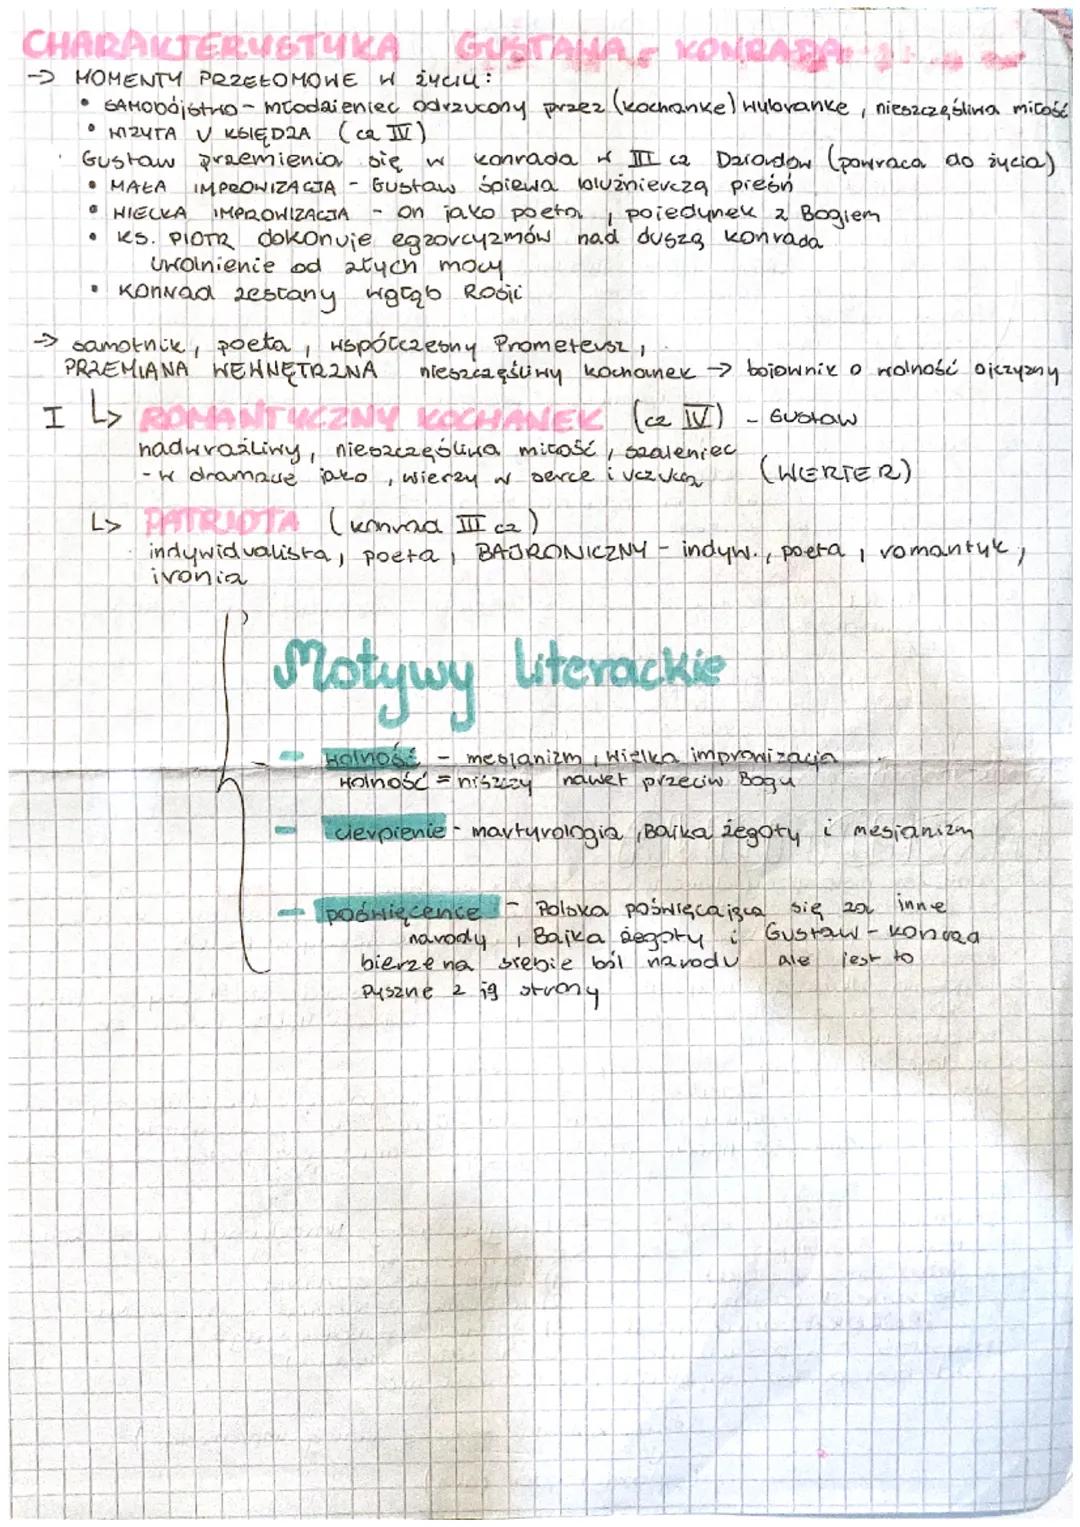 CHARAKTERYSTYKA GUSTAWA - KONRADA
→ MOMENTY PRZEŁOMOWE W ŻYCIU:
• SAMOBÓJSTWO - młodzieniec odrzucony przez (kochankę) wybrankę, nieszczęśliwa miłość
• WIZYTA U KSIĘDZA (cz IV)
Gustaw przemienia się w konrada w III cz Dziadów (powraca do życia)
• MAŁA IMPROWIZACJA - Gustaw śpiewa bluźnierczą pieśń
• WIELKA IMPROWIZACJA - on jako poeta, pojedynek z Bogiem
• KS. PIOTR dokonuje egzorcyzmów nad duszą konrada
uwolnienie od złych mocy
• Konrad zesłany wgłąb Rosji
→ samotnik, poeta, współczesny Prometeusz,
PRZEMIANA WEWNĘTRZNA nieszczęśliwy kochanek → bojownik o wolność ojczyzny
I ↳ ROMANTYCZNY KOCHANEK (cz IV) - Gustaw
nadwrażliwy, nieszczęśliwa miłość, szaleniec
- w dramacie jako, wierzy w serce i uczucia (WERTER)
↳ PATRIOTA (konrad III cz)
indywidualista, poeta, BAJRONICZNY - indyw., poeta, romantyk,
ironia
Motywy literackie
- wolność - mesjanizm, Wielka improwizacja
wolność = niszczy nawet przeciw Bogu
- cierpienie - martyrologia, Bajka żegoty i mesjanizm
- poświęcenie - Polska poświęcająca się za inne
narody, Bajka żegoty i Gustaw - konrad
bierze na siebie ból narodu ale jest to
pyszne z jg strony